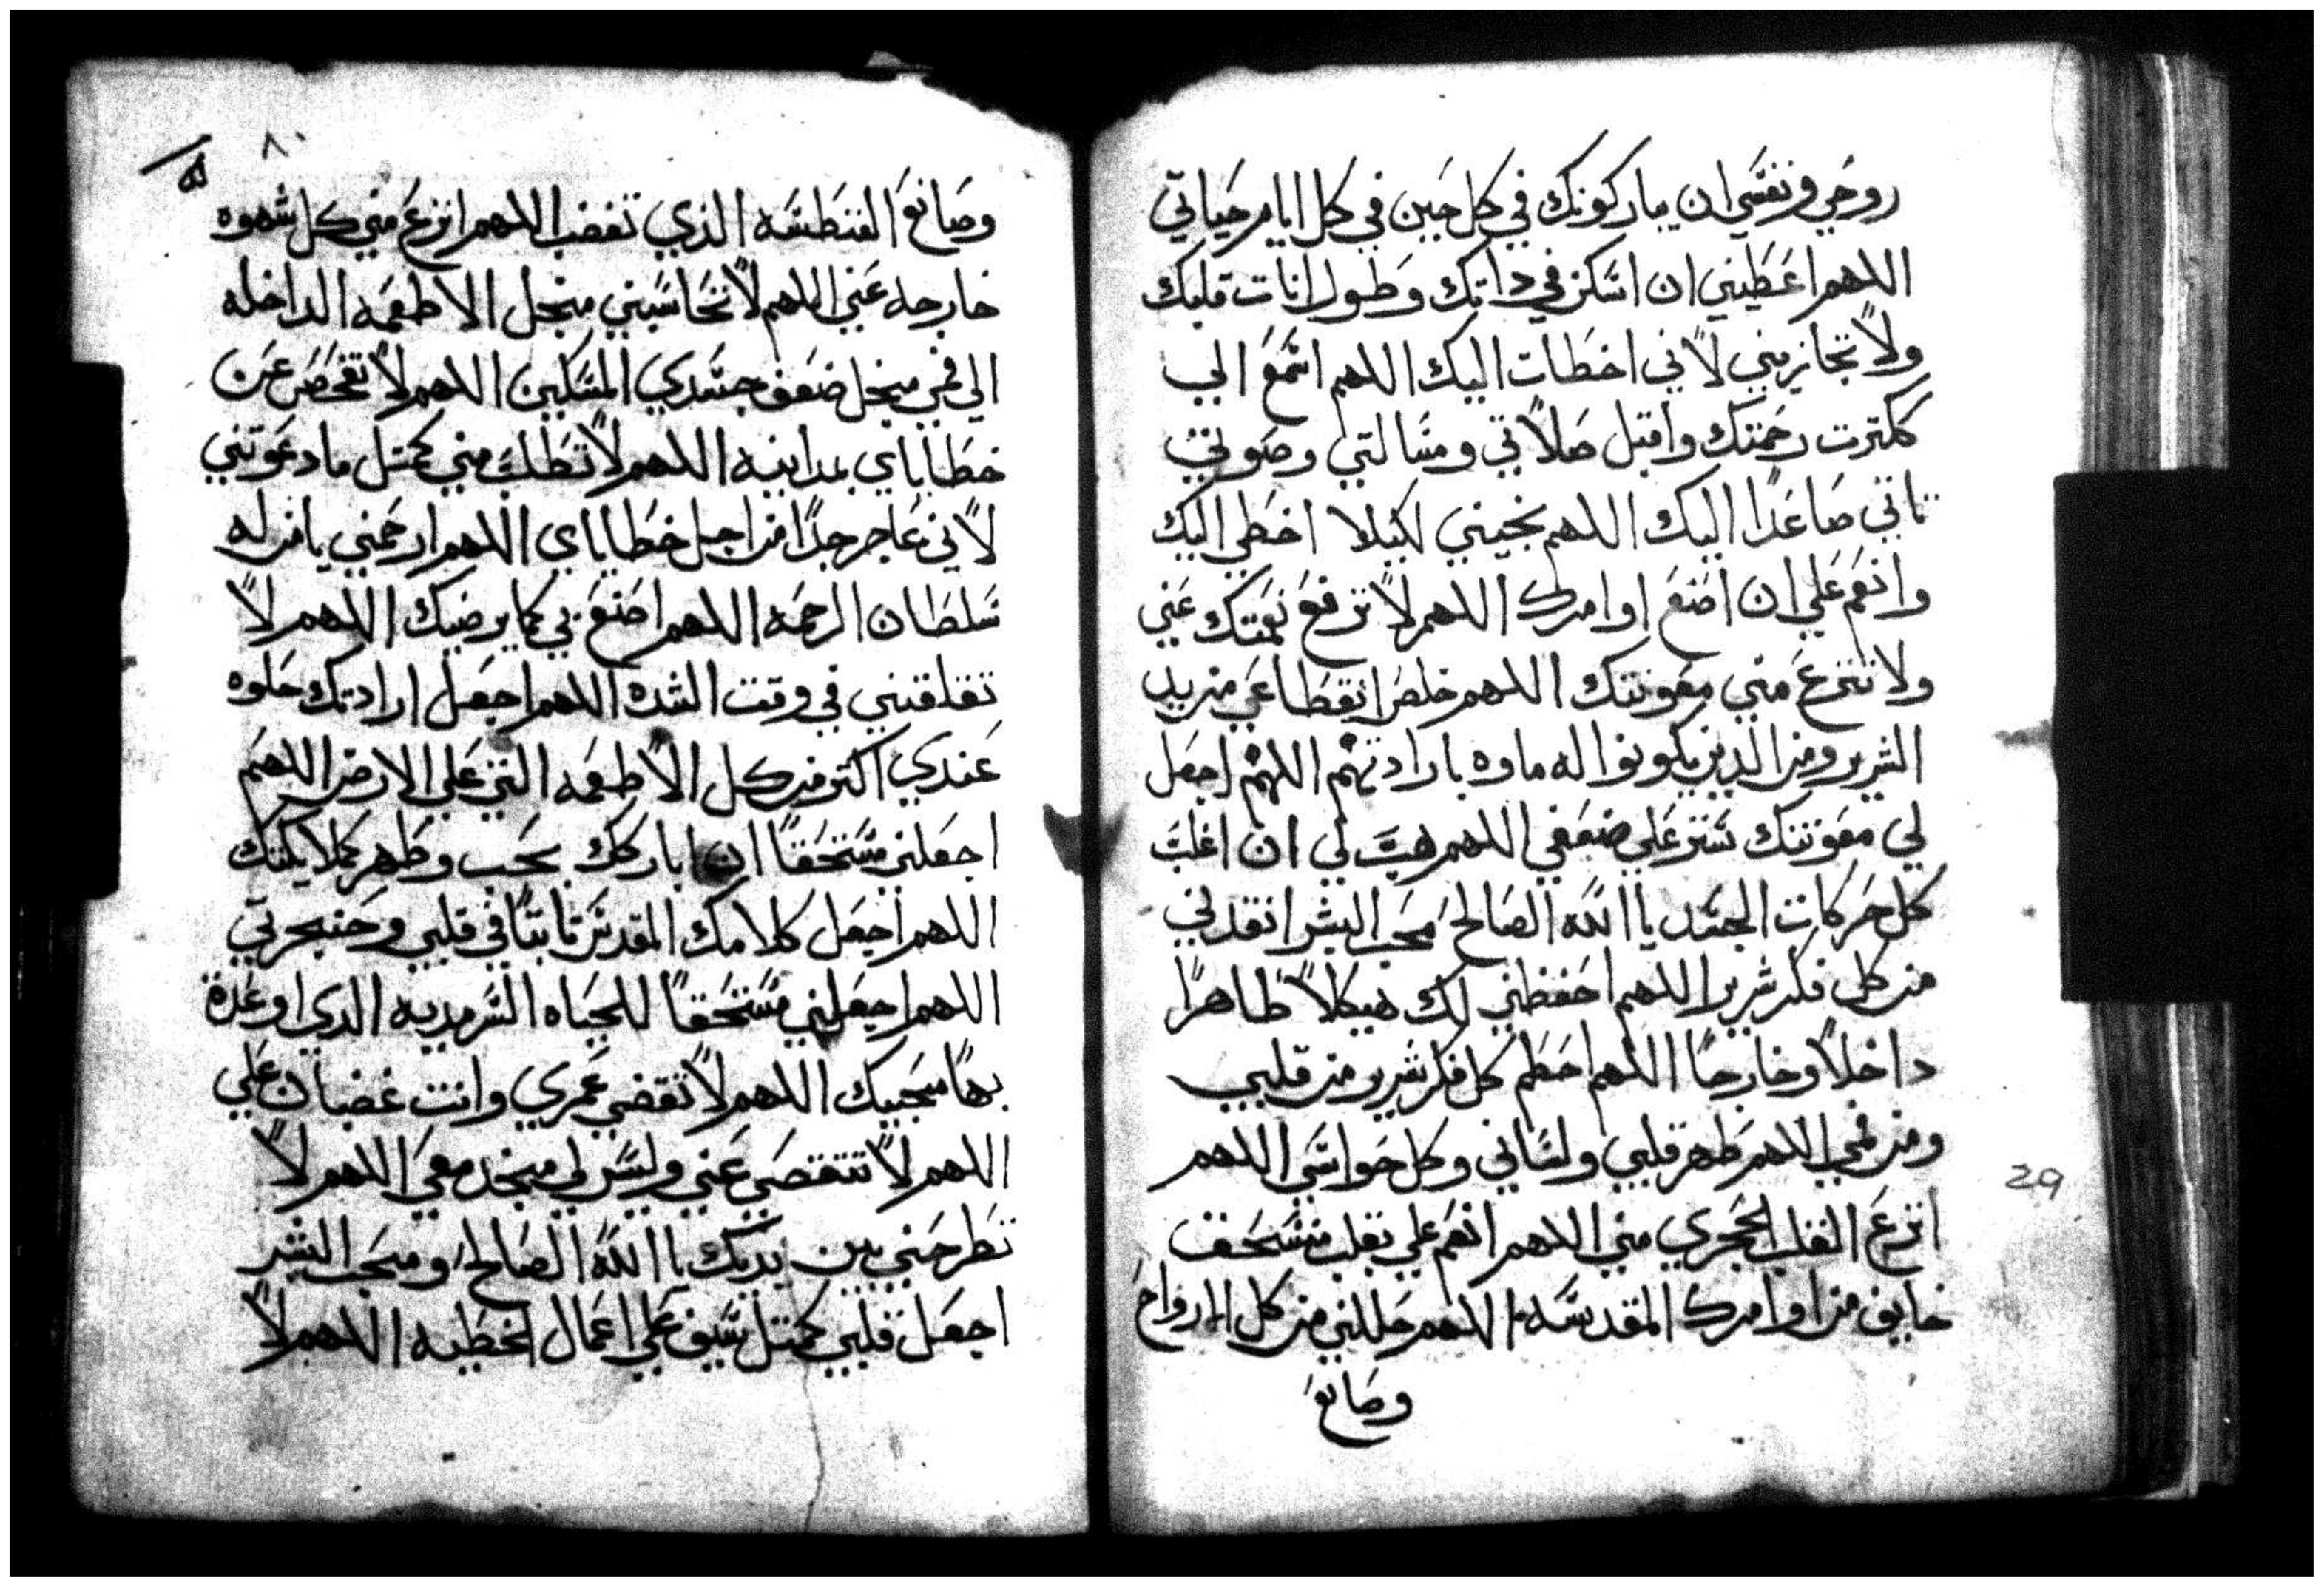 روحي ونفسي ان يباركونك في كل حين في كل ايام حياتي
اللهم اعطيني ان اسكن في داتك وطول انات قلبك
ولا تجازيني لاني اخطات اليك اللهم اسمع الي
ككترت رحمتك واقبل صلاتي ومسالتي وصوتي
ياتي صاعدا اليك اللهم نجيني لكيلا اخطي اليك
وانعم علي ان اصنع اوامرك اللهم لا ترفع نعمتك عني
ولا تنزع مني معونتك اللهم خلص انقطاعي من يد
الشرير ومن الدين يكونوا له ماوه بارادتهم اللهم اجعل
لي معونتك تستر علي ضعفي اللهم هب لي ان اغلب
كل حركات الجسد يا الله الصالح محب البشر انقدني
من كل فكر شرير اللهم احفظني لك هيكلا طاهرا
داخلا وخارجا اللهم احطم كل فكر شرير من قلبي
ومن فمي اللهم طهر قلبي ولساني وكل حواسي اللهم
انزع القلب الحجري مني اللهم انعم علي بقلب منسحق
خايف من اوامرك المقدسه اللهم حللني من كل الارواح
وصانع
٨٠
وصانع الفنطسه الذي تغضب اللهم انزع مني كل شهوه
خارجه عني اللهم لا تحاسبني منجل الاطعمه الداخله
الي فمي منجل ضعف جسدي المسكين اللهم لا تفحص عن
خطاياي بمداينه اللهم لا تطلب مني كمتل ما دعوتني
لاني عاجز جدا من اجل خطاياي اللهم ارحمني يا من له
سلطان الرحمه اللهم اصنع بي كما يرضيك اللهم لا
تقلقني في وقت الشده اللهم اجعل ارادتك حلوه
عندي اكتر من كل الاطعمه التي علي الارض اللهم
اجعلني مستحقا ان اباركك بحب وطهر كملايكتك
اللهم اجعل كلامك المقدس تابتا في قلبي وحنجرتي
اللهم اجعلني مستحقا للحياه السرمديه الدي اوعدة
بها محبيك اللهم لا تقضي عمري وانت غضبان علي
اللهم لا تتقصي عني وليس لي منجد معي اللهم لا
تطرحني بين يديك يا الله الصالح ومحب البشر
اجعل قلبي كمتل سيف علي اعمال الخطيه اللهم لا
29